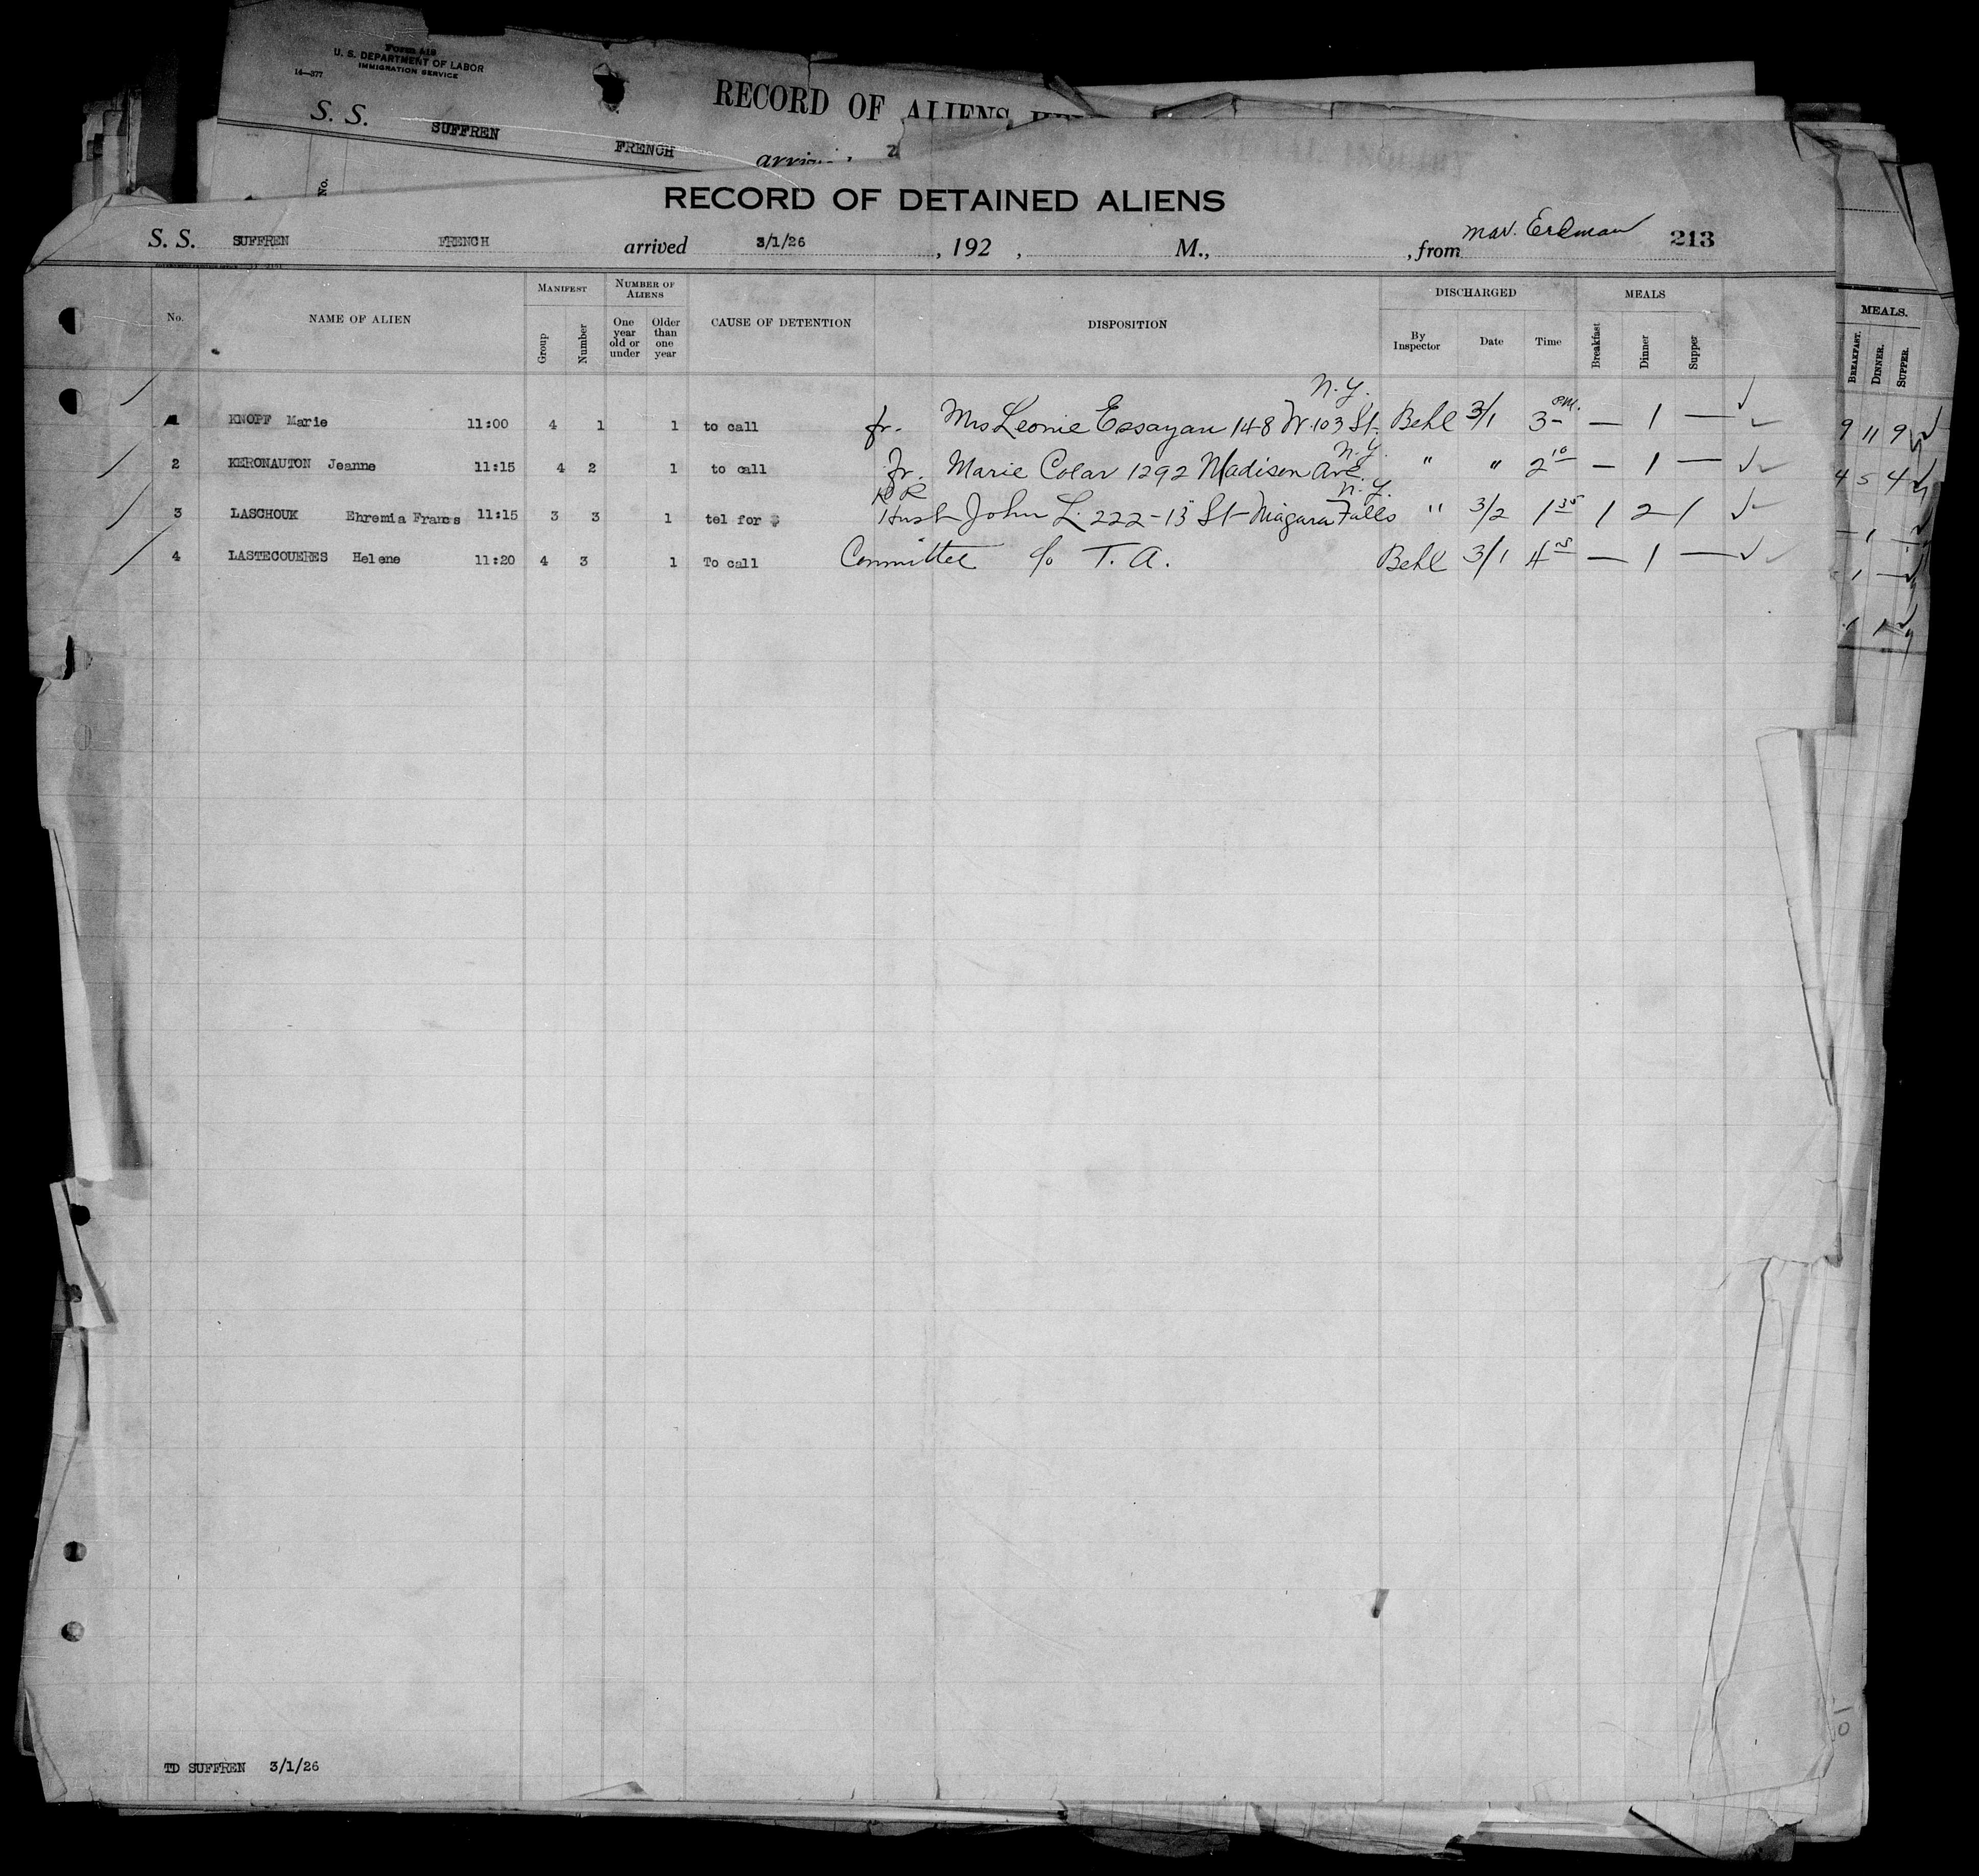 Form 518
U. S. DEPARTMENT OF LABOR
IMMIGRATION SERVICE
14—377
RECORD OF ALIENS
S. S. SUFFREN FRENCH
No.
RECORD OF DETAINED ALIENS
S. S. SUFFREN FRENCH arrived 3/1/26 , 192 , M., , from 213
No. NAME OF ALIEN MANIFEST Group Number NUMBER OF ALIENS One year old or under Older than one year CAUSE OF DETENTION DISPOSITION DISCHARGED By Inspector Date Time MEALS Breakfast Dinner Supper
MEALS.
BREAKFAST. DINNER. SUPPER.
N.Y.
1 KNOPF Marie 11:00 4 1 1 to call fr. Mrs Leonie Essayan 148 W. 103 St. Behl 3/1 3 PM. — 1 —
9 11 9
N.Y.
2 KERONAUTON Jeanne 11:15 4 2 1 to call fr. Marie Colar 1292 Madison Ave. " " 2 10 — 1 —
4 5 4
N.Y.
3 LASCHOUK Ehremia Francs 11:15 3 3 1 tel for $ Husb John L. 222-13 St Niagara Falls " 3/2 1 35 1 2 1
— 1 —
4 LASTECOUERES Helene 11:20 4 3 1 To call Committee c/o T. A. Behl 3/1 4 — 1 —
TD SUFFREN 3/1/26